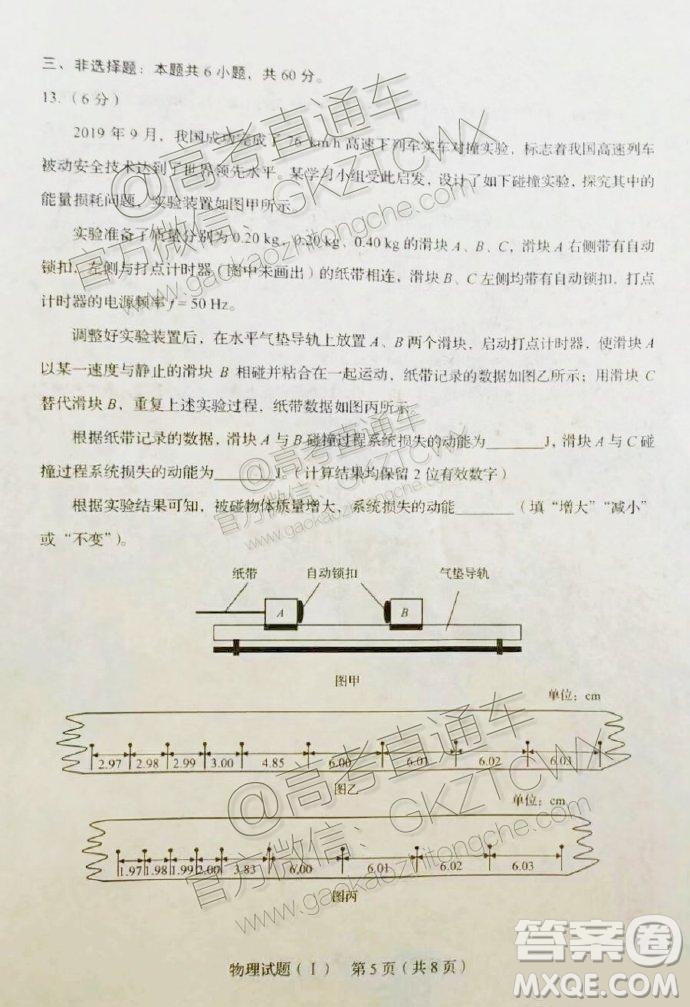 三、非选择题：本题共 6 小题，共 60 分。
13.（6 分）
2019 年 9 月，我国成功完成了 76 km/h 高速下列车实车对撞实验，标志着我国高速列车
被动安全技术达到了世界领先水平。某学习小组受此启发，设计了如下碰撞实验，探究其中的
能量损耗问题，实验装置如图甲所示。
实验准备了质量分别为 0.20 kg、0.20 kg、0.40 kg 的滑块 A、B、C，滑块 A 右侧带有自动
锁扣，左侧与打点计时器（图中未画出）的纸带相连，滑块 B、C 左侧均带有自动锁扣，打点
计时器的电源频率 f = 50 Hz。
调整好实验装置后，在水平气垫导轨上放置 A、B 两个滑块，启动打点计时器，使滑块 A
以某一速度与静止的滑块 B 相碰并粘合在一起运动，纸带记录的数据如图乙所示；用滑块 C
替代滑块 B，重复上述实验过程，纸带数据如图丙所示。
根据纸带记录的数据，滑块 A 与 B 碰撞过程系统损失的动能为_______J，滑块 A 与 C 碰
撞过程系统损失的动能为_______J。（计算结果均保留 2 位有效数字）
根据实验结果可知，被碰物体质量增大，系统损失的动能________（填“增大”“减小”
或“不变”）。
纸带 自动锁扣 气垫导轨
A B
图甲
单位：cm
2.97 2.98 2.99 3.00 4.85 6.00 6.01 6.02 6.03
图乙
单位：cm
1.97 1.98 1.99 2.00 3.83 6.00 6.01 6.02 6.03
图丙
物理试题（Ⅰ） 第 5 页（共 8 页）
@高考直通车
官方微信：GKZTCWX
www.gaokaozhitongche.com
@高考直通车
官方微信：GKZTCWX
www.gaokaozhitongche.com
答案圈
MXQE.COM